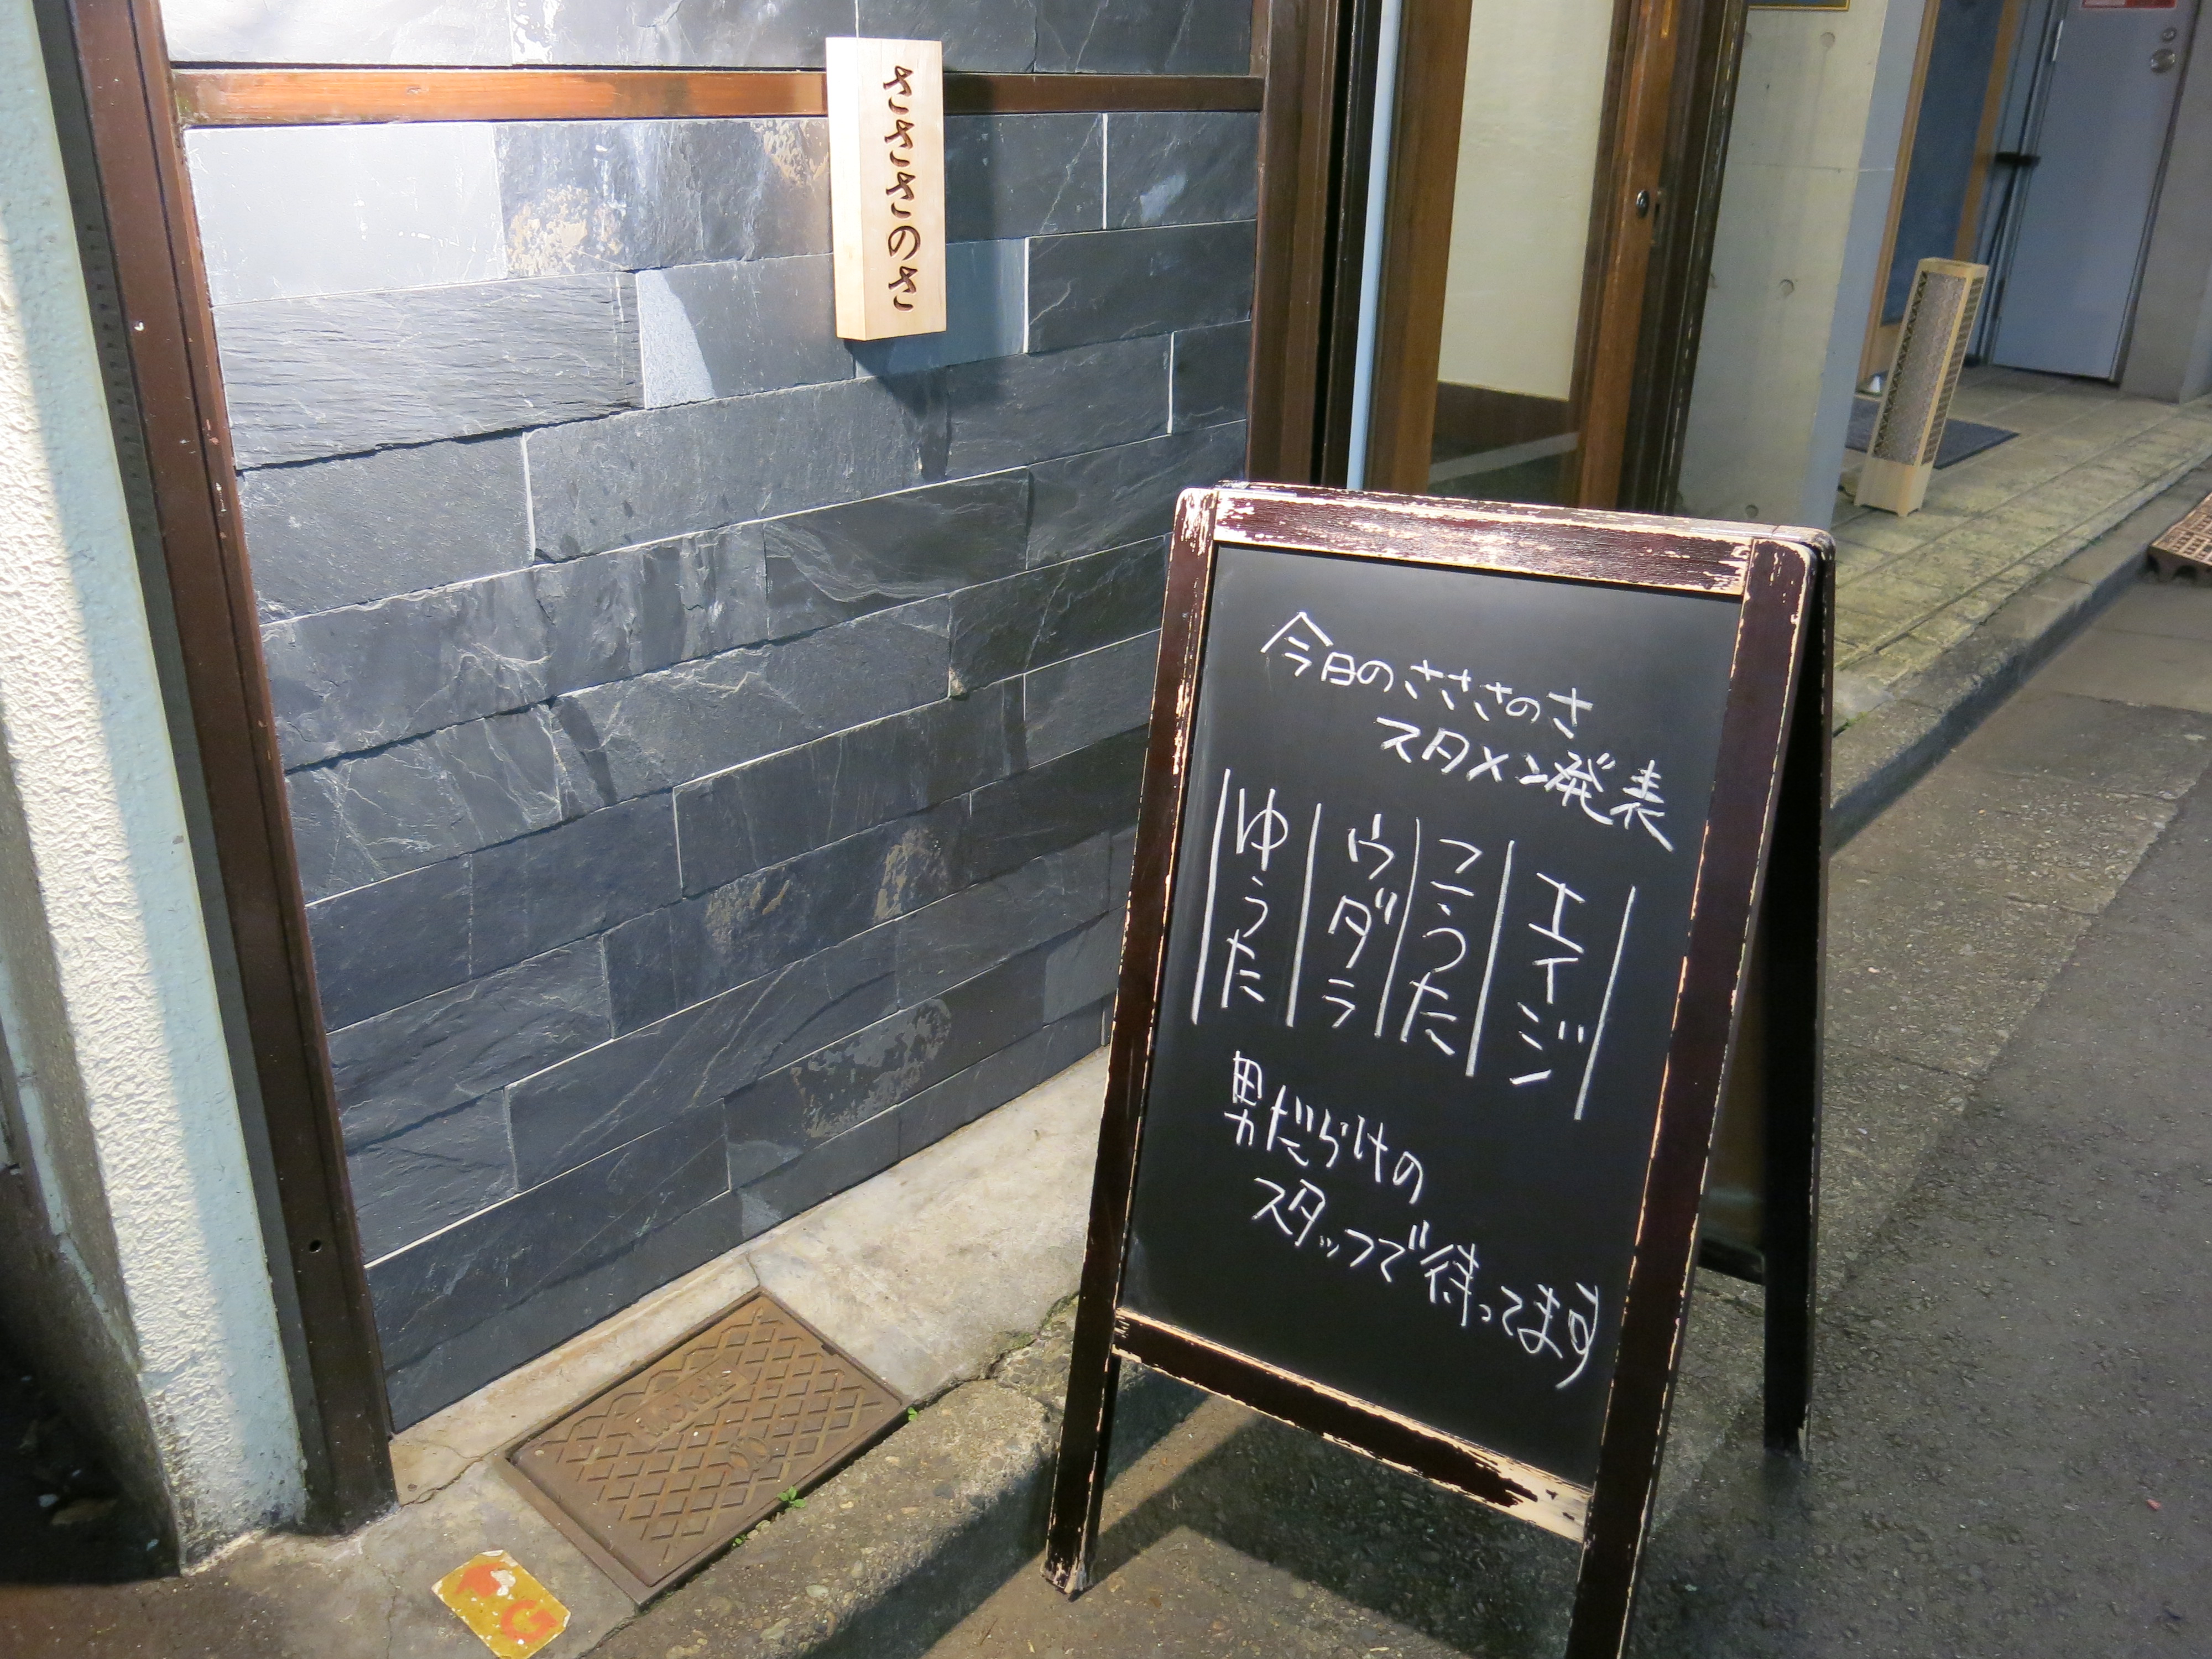 さささのさ
今日のさささのさ
スタメン発表
エイジ
こうた
ウダラ
ゆうた
男だらけの
スタッフで待ってます
G